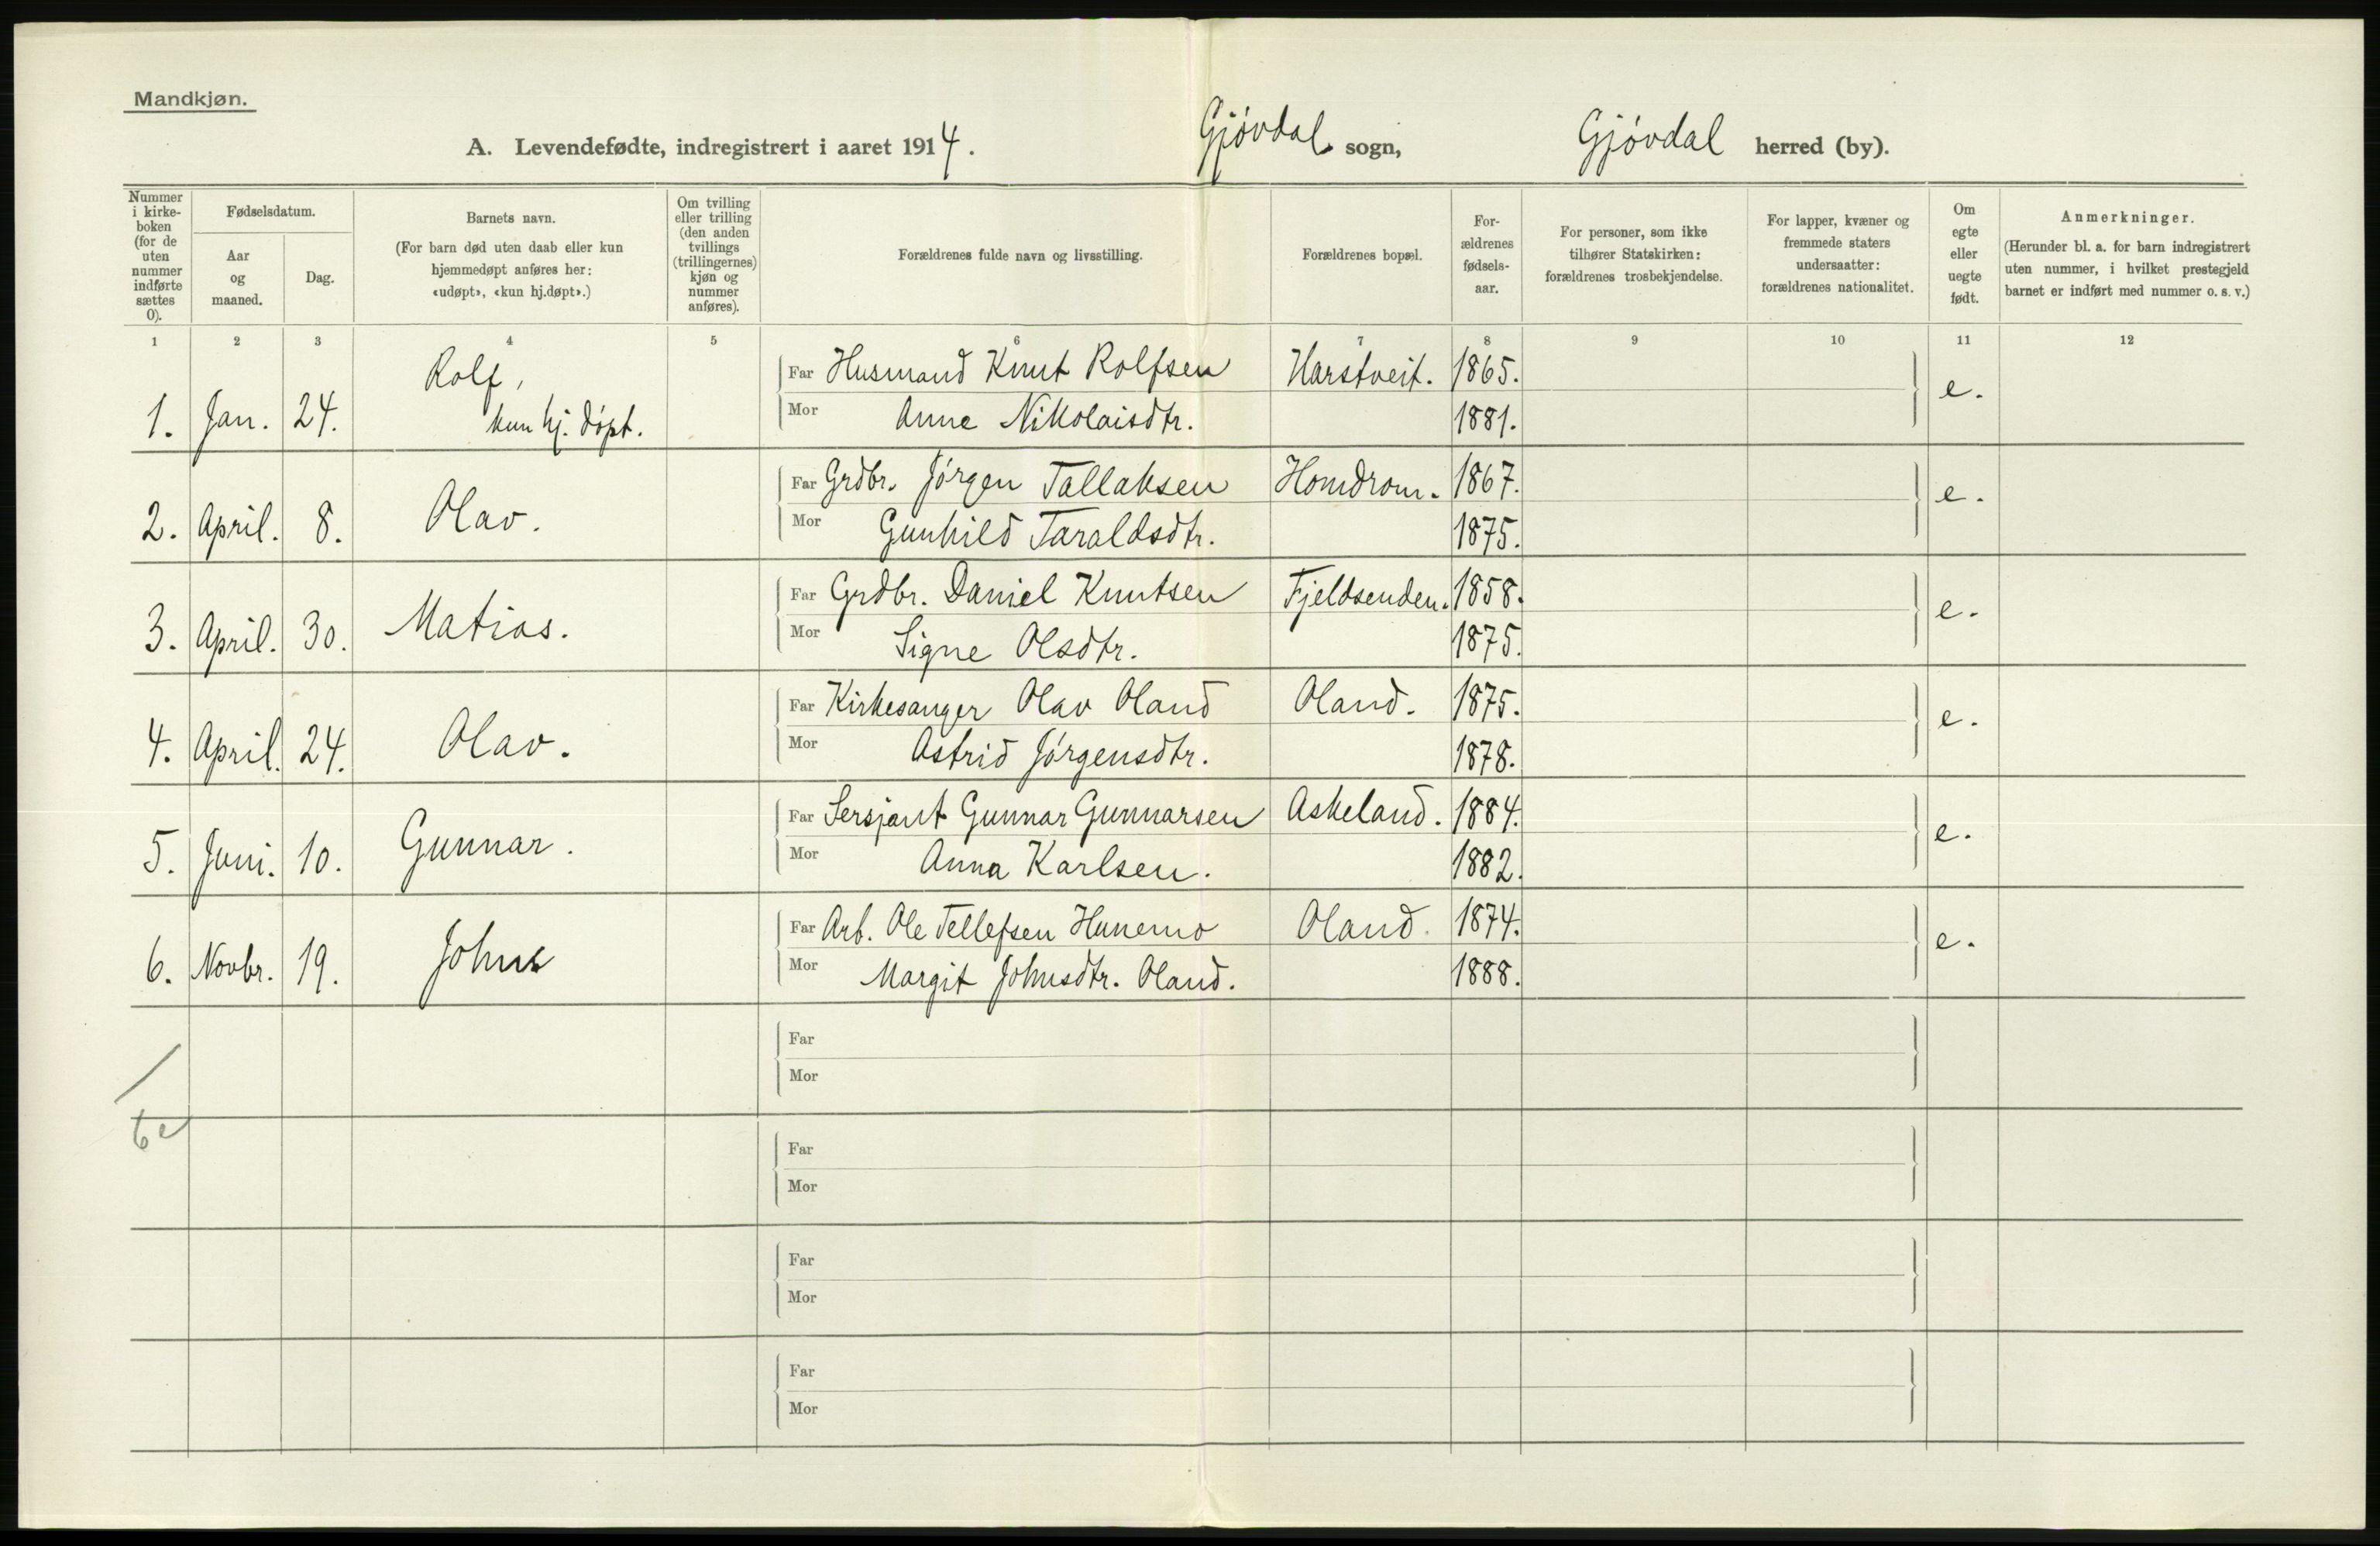 Mandkjøn.
A. Levendefødte, indregistrert i aaret 1914. Gjövdal sogn, Gjövdal herred (by).
Nummer i kirke-boken (for de uten nummer indførte sættes 0).
Fødselsdatum.
Aar og maaned.
Dag.
Barnets navn.
(For barn død uten daab eller kun hjemmedøpt anføres her: «udøpt», «kun hj.døpt».)
Om tvilling eller trilling (den anden tvillings (trillingernes) kjøn og nummer anføres).
Forældrenes fulde navn og livsstilling.
Forældrenes bopæl.
For-ældrenes fødsels-aar.
For personer, som ikke tilhører Statskirken: forældrenes trosbekjendelse.
For lapper, kvæner og fremmede staters undersaatter: forældrenes nationalitet.
Om egte eller uegte født.
Anmerkninger.
(Herunder bl. a. for barn indregistrert uten nummer, i hvilket prestegjeld barnet er indført med nummer o. s. v.)
1 2 3 4 5 6 7 8 9 10 11 12
Rolf, Far Husmand Knut Rolfsen Harstveit. 1865.
1. Jan. 24. kun hj. döpt. Mor Anne Nikolaisdtr. 1881. e.
Far Grdbr. Jörgen Tallaksen Homdrom. 1867.
2. April. 8. Olav. Mor Gunhild Taraldsdtr. 1875. e.
Far Grdbr. Daniel Knutsen Fjeldsenden. 1858.
3. April. 30. Matias. Mor Signe Olsdtr. 1875. e.
Far Kirkesanger Olav Oland Oland. 1875.
4. April. 24. Olav. Mor Astrid Jörgensdtr. 1878. e.
Far Sersjant Gunnar Gunnarsen Askeland. 1884.
5. Juni. 10. Gunnar. Mor Anna Karlsen. 1882. e.
Far Arb. Ole Tellefsen Hunemo Oland. 1874.
6. Novbr. 19. John Mor Margit Johnsdtr. Oland. 1888. e.
Far
Mor
6 e
Far
Mor
Far
Mor
Far
Mor